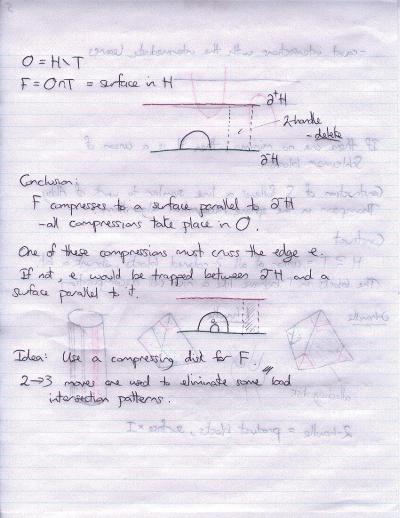 O = H\T
F = O∩T = surface in H
∂⁺H
2-handle
- delete
∂⁻H
Conclusion:
F compresses to a surface parallel to ∂⁻H
- all compressions take place in O.
One of these compressions must cross the edge e.
If not, e would be trapped between ∂⁻H and a
surface parallel to it.
Idea: Use a compressing disk for F.
2→3 moves are used to eliminate some bad
intersection patterns.